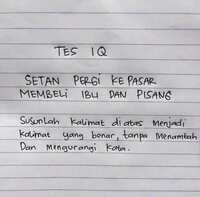 TES IQ
SETAN PERGI KE PASAR
MEMBELI IBU DAN PISANG
Susunlah kalimat diatas menjadi
kalimat yang benar, tanpa menambah
Dan mengurangi kata.